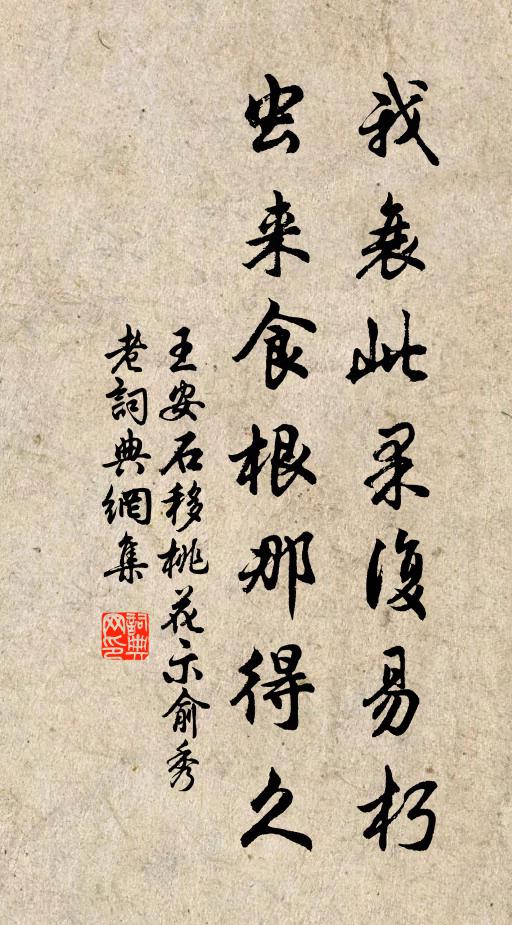 我衰此果復易朽
虫来食根那得久
王安石移桃花示俞秀
老詞典網集
詞典
网印